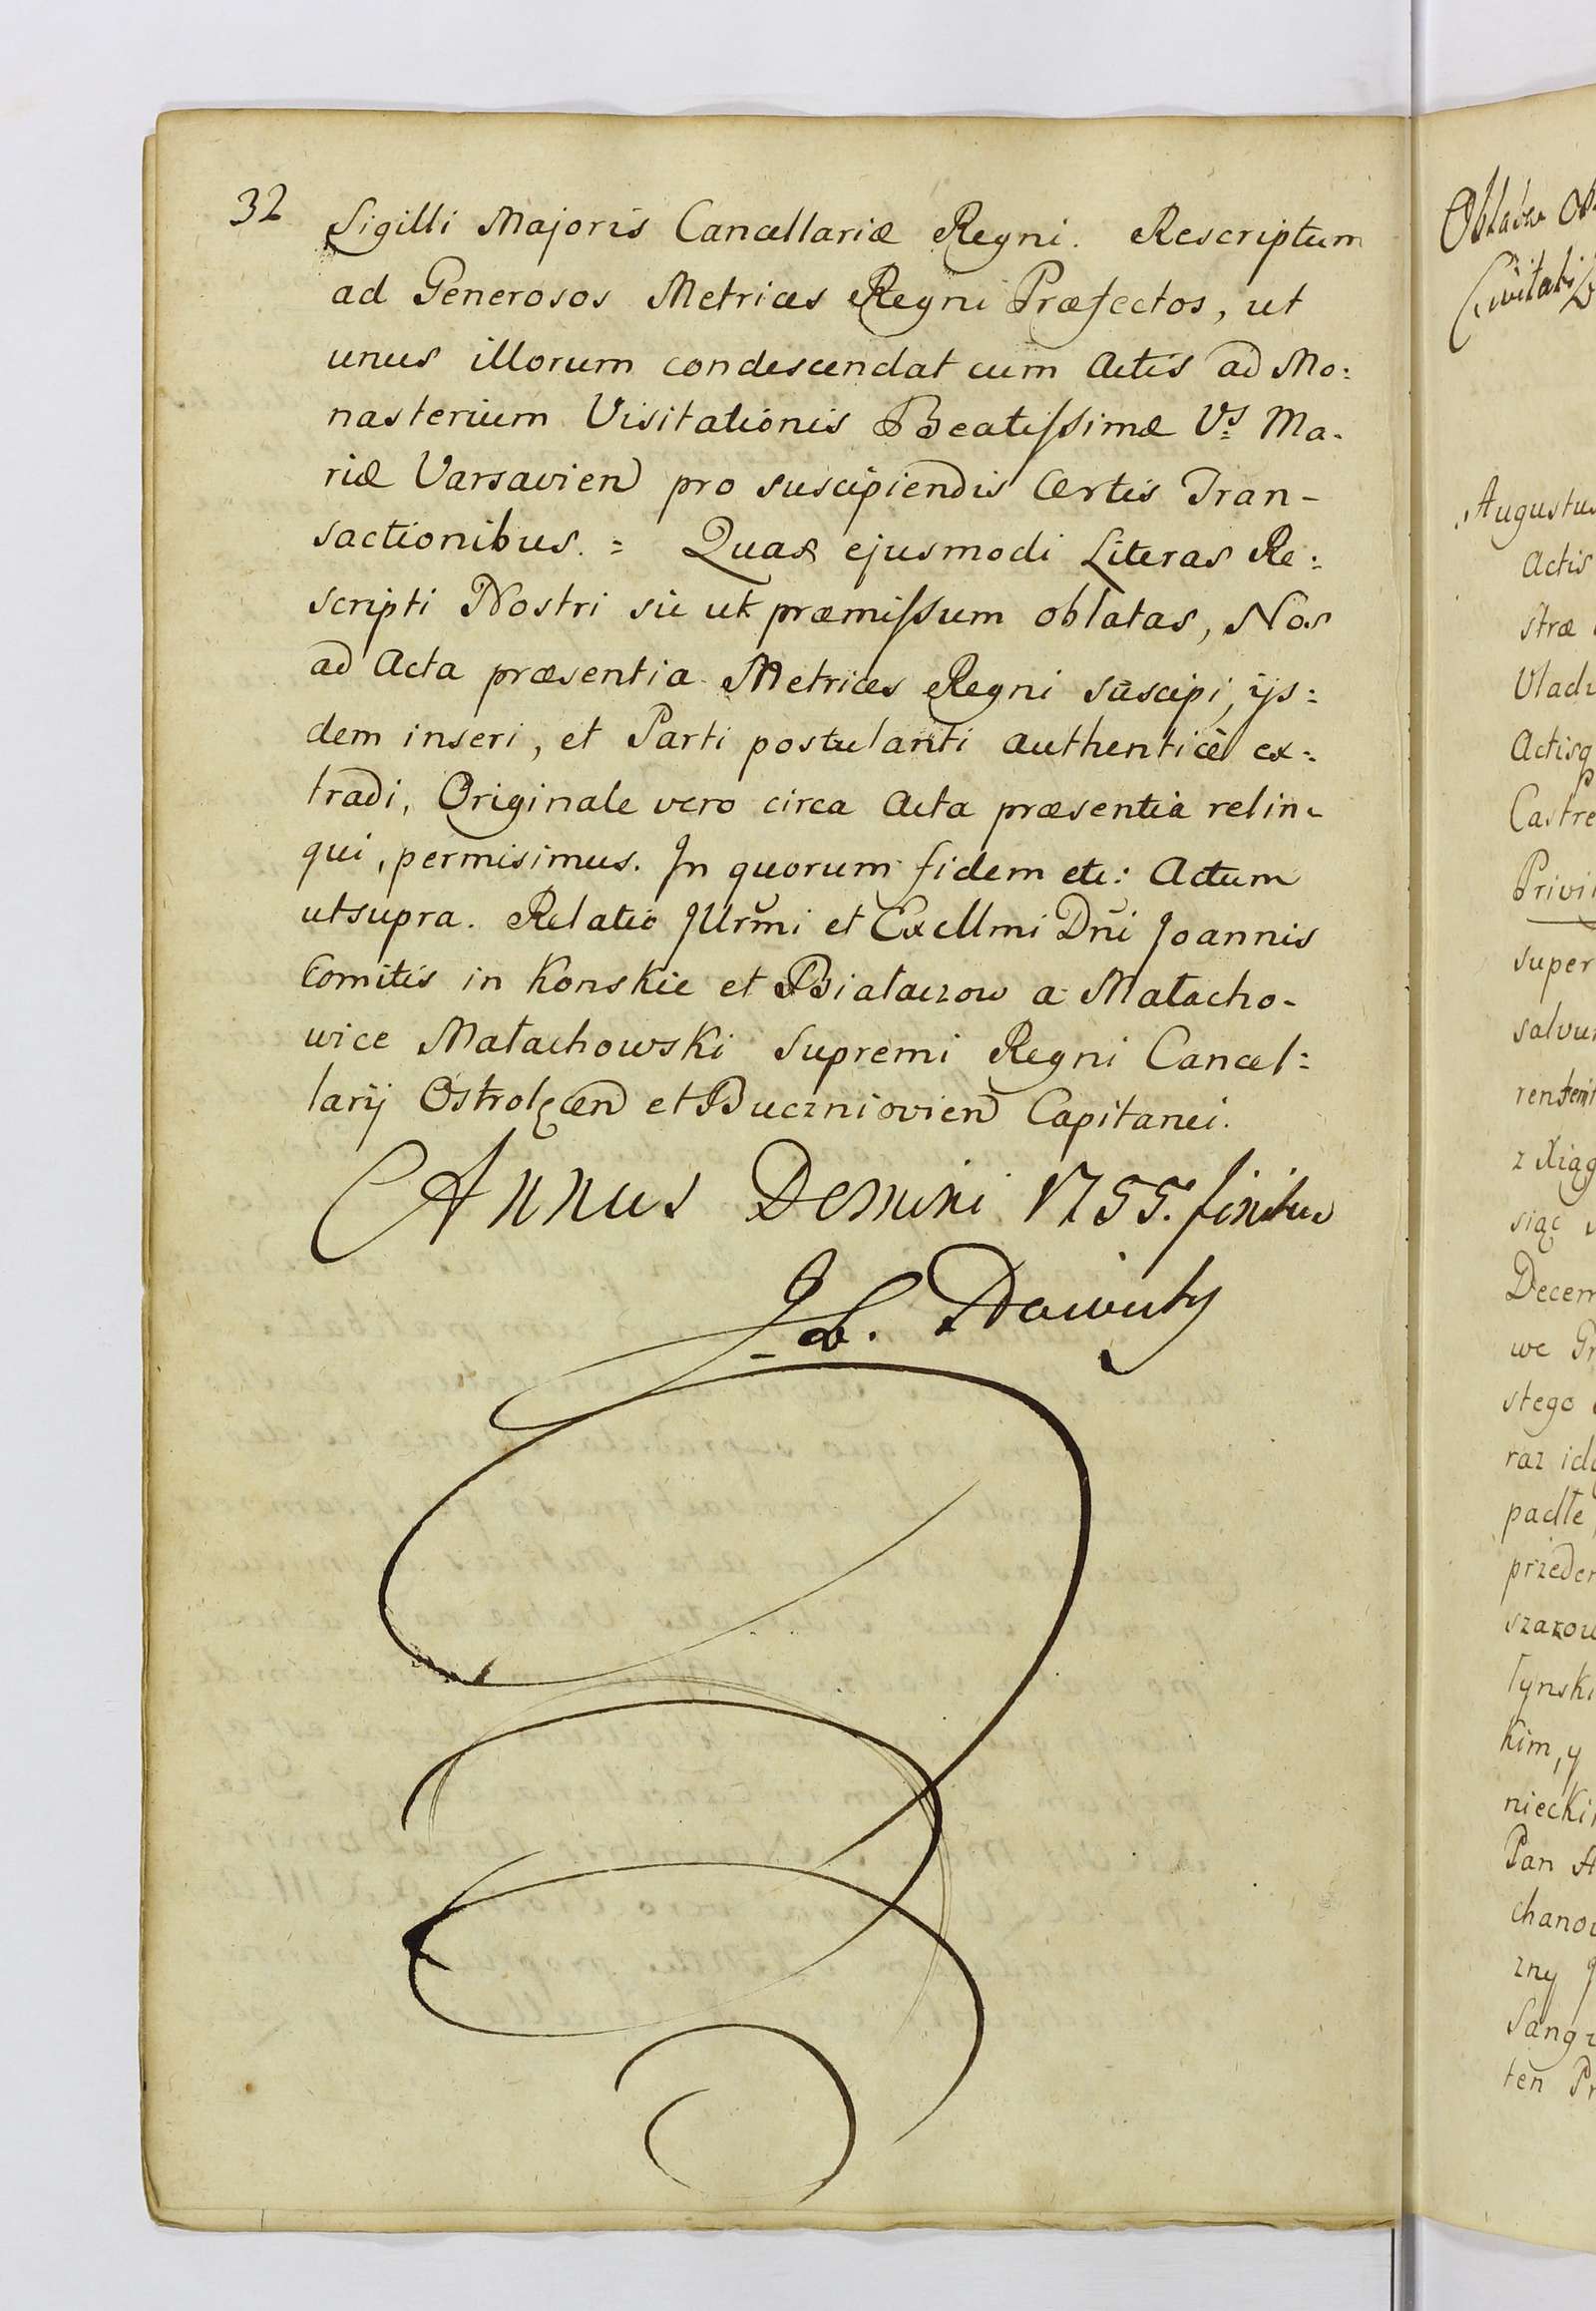 32
Sigilli Majoris Cancellariæ Regni. Rescriptum
ad Generosos Metrices Regni Præfectos, ut
unus illorum condescendat cum Actis ad Mo:
nasterium Visitationis Beatissimæ Vs Ma-
riæ Varsavien pro suscipiendis Certis Tran-
sactionibus. = Quas ejusmodi Literas Re:
scripti Nostri sic ut præmissum oblatas, Nos
ad Acta præsentia Metrices Regni suscipi, ijs:
dem inseri, et Parti postulanti authenticè ex:
tradi, Originale vero circa Acta præsentia relin-
qui, permisimus. In quorum fidem etc: Actum
utsupra. Relatio Jllrm̃i et Excllmi Dñi Joannis
Comitis in Konskie et Białaczow a Małacho-
wice Małachowski Supremi Regni Cancel:
larij Ostrołęcen et Buczniovien Capitanei.
Annus Domini 1755. finitur
Oblata
Civitati
Augustus
Actis
stræ
Vladi
Actisq
Castre
Privi
super
salvu
z Xiąg
siąc
Decem
we Pr
stego
raz
padłe
przeder
szazow
łynski
kim, y
niecki
Pan
chano
zny
Sang
ten Pr